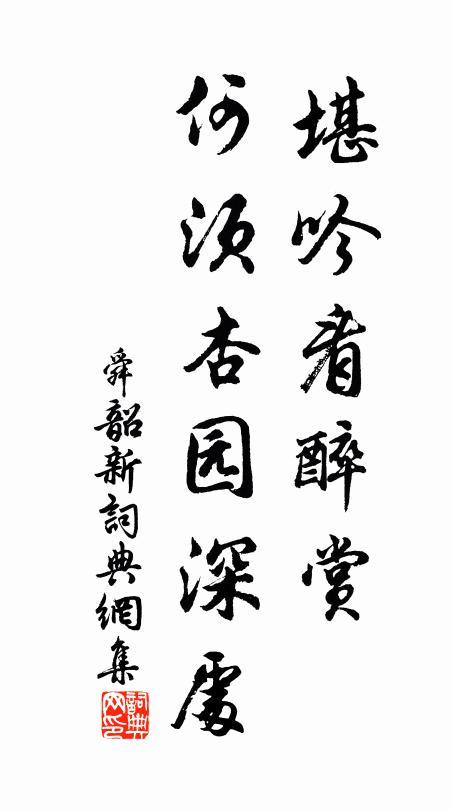 堪吟看醉赏
何须杏园深處
舜韶新詞典網集
詞典网印